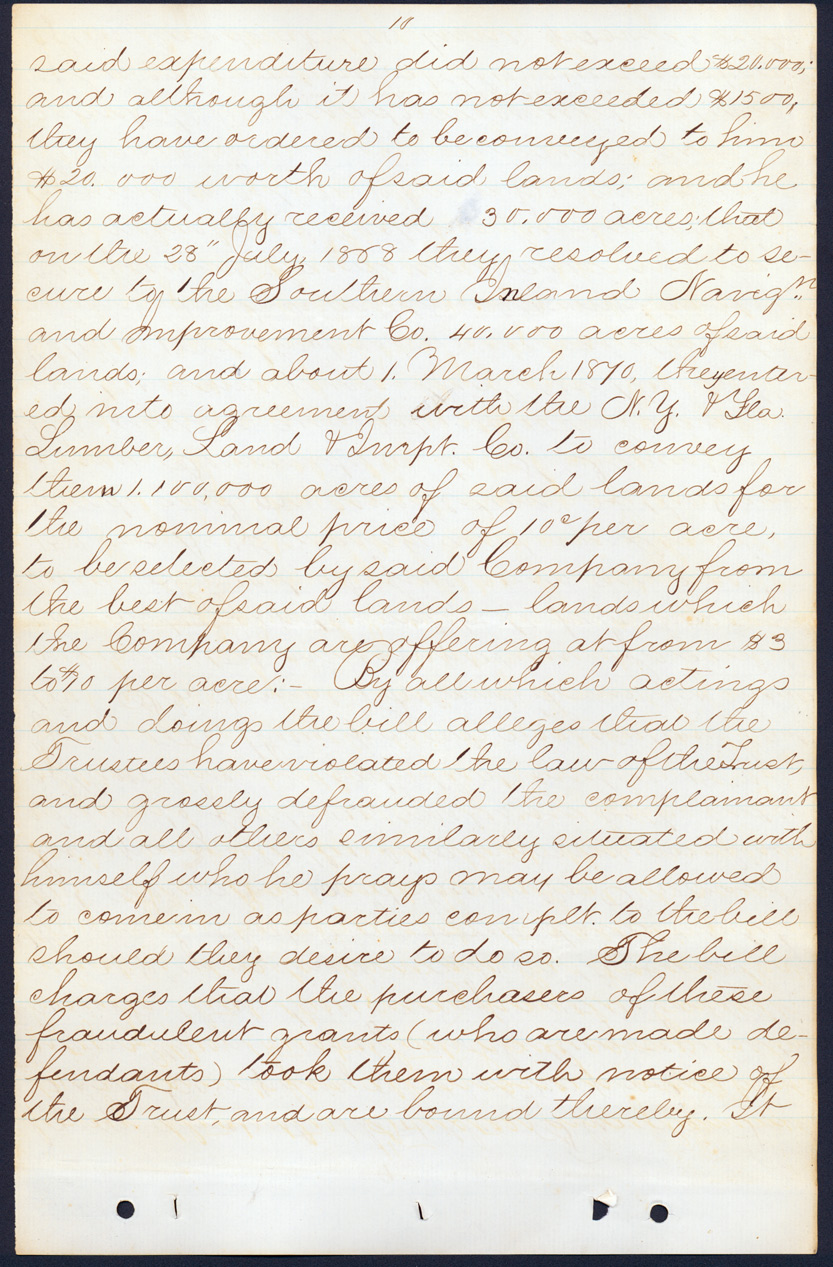 10
said expenditure did not exceed $20.000;
and although it has not exceeded $1500,
they have ordered to be conveyed to him
$20.000 worth of said lands; and he
has actually received 30.000 acres; that
on the 28" July, 1868 they resolved to se-
cure to the Southern Inland Navign.
and Improvement Co. 40.000 acres of said
lands; and about 1. March 1870, they enter-
ed into agreement with the N.Y. & Fla.
Lumber, Land & Impt. Co. to convey
them 1.100,000 acres of said lands for
the nominal price of 10c per acre,
to be selected by said Company from
the best of said lands — lands which
the Company are offering at from $3
to $10 per acre:— By all which actings
and doings the bill alleges that the
Trustees have violated the law of the Trust,
and grossly defrauded the complainant
and all others similarly situated with
himself who he prays may be allowed
to come in as parties complt. to the bill
should they desire to do so. The bill
charges that the purchasers of these
fraudulent grants (who are made de-
fendants) took them with notice of
the Trust, and are bound thereby. It